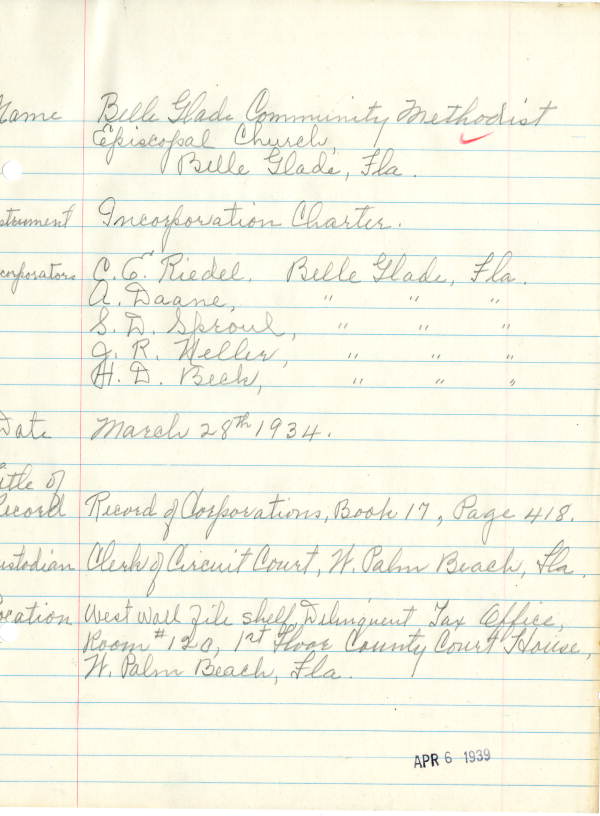 Name Belle Glade Community Methodist
Episcopal Church,
Belle Glade, Fla.
strument Incorporation Charter.
corporators C. E. Riedel. Belle Glade, Fla.
A. Daane, " " "
S. D. Sproul, " " "
J. R. Weller, " " "
H. D. Beck, " " "
Date March 28th 1934.
Title of
Record Record of Corporations, Book 17, Page 418.
ustodian Clerk of Circuit Court, W. Palm Beach, Fla.
ocation West Wall File shelf, Delinquent Tax Office,
Room #120, 1st Floor County Court House,
W. Palm Beach, Fla.
APR 6 1939